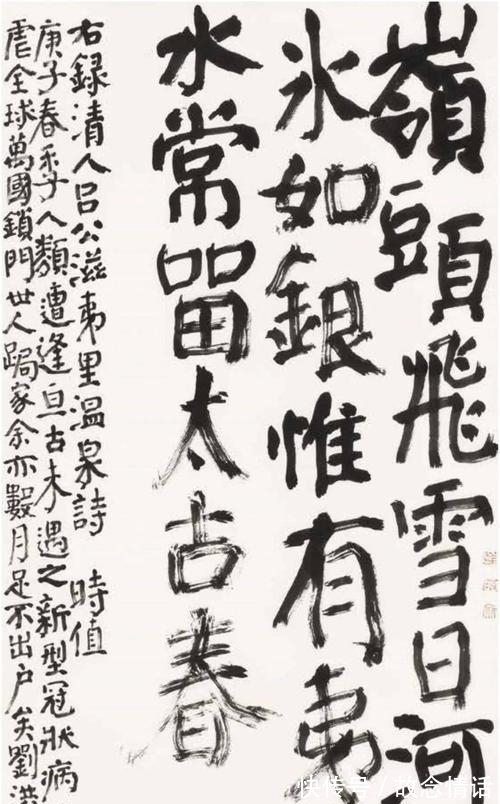 嶺頭飛雪日河
氷如銀惟有
水常留太古春
右録清人吕公滋里温泉詩 時值
庚子春季人類遭逢亘古未遇之新型冠狀病
虐全球萬國鎖門世人跼家余亦數月足不出户矣劉洪
快传号/故念情话